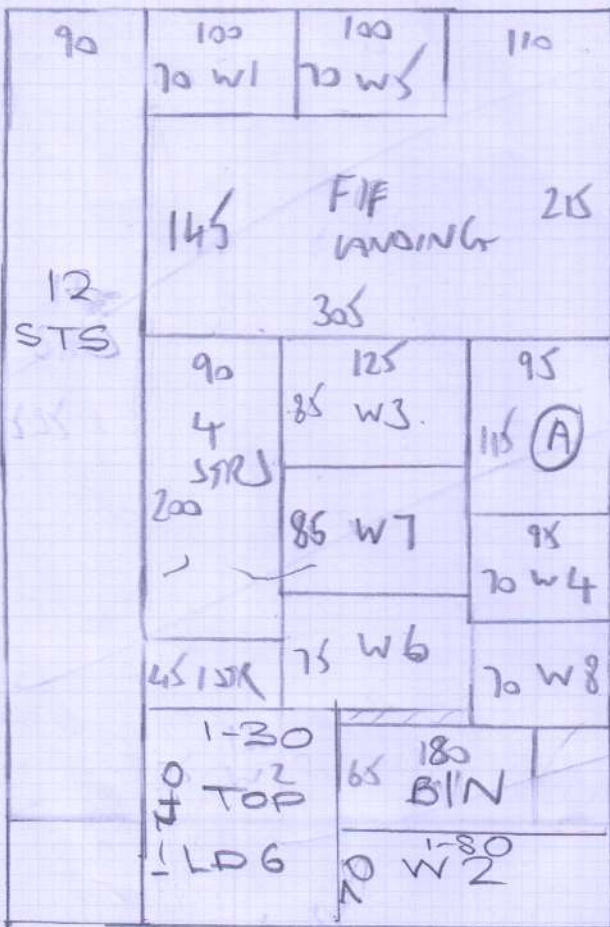 90
100
70 W1
100
70 W5
110
145
F/F
LANDING
215
305
12
STS
90
4
STRS
200
125
85 W3
95
115 A
85 W7
95
70 W4
75 W6
70 W8
45 1SR
1-30
TOP
1-40
LD6
180
65 BIN
1-80
70 W2